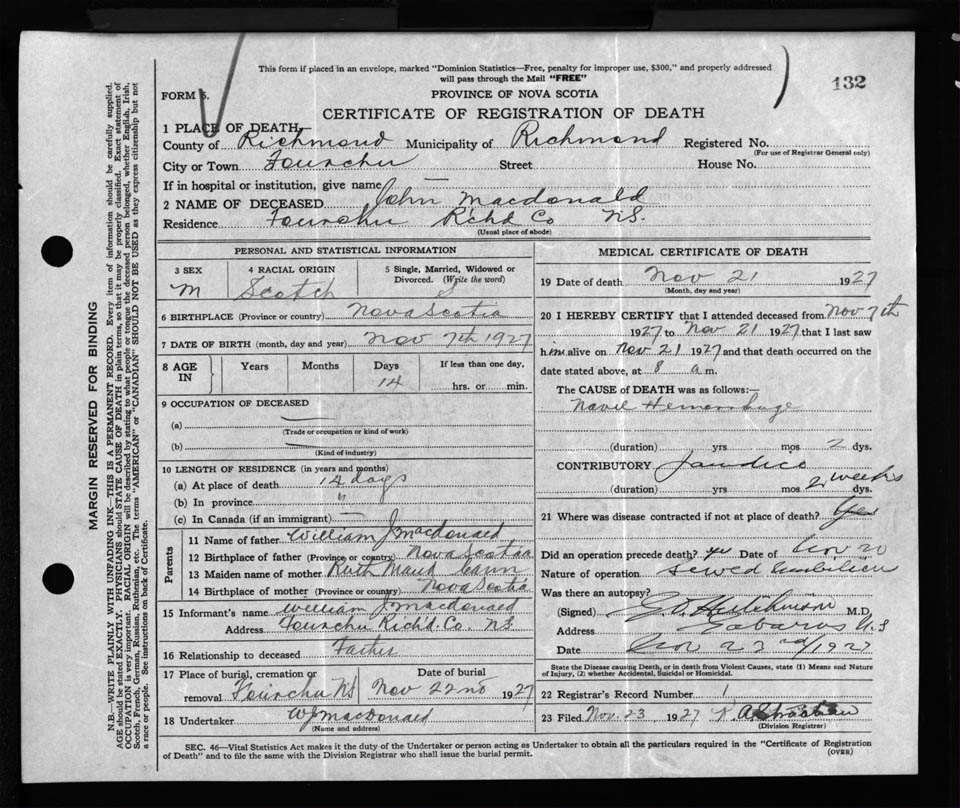 This form if placed in an envelope, marked "Dominion Statistics—Free, penalty for improper use, $300," and properly addressed
will pass through the Mail "FREE"
132
FORM 5.
PROVINCE OF NOVA SCOTIA
CERTIFICATE OF REGISTRATION OF DEATH
1 PLACE OF DEATH
County of Richmond Municipality of Richmond Registered No.
(For use of Registrar General only)
City or Town Fourchu Street House No.
If in hospital or institution, give name —
2 NAME OF DECEASED John Macdonald
Residence Fourchu Richd Co NS.
(Usual place of abode)
PERSONAL AND STATISTICAL INFORMATION
3 SEX 4 RACIAL ORIGIN 5 Single, Married, Widowed or
Divorced. (Write the word)
M Scotch S
6 BIRTHPLACE (Province or country) Nova Scotia
7 DATE OF BIRTH (month, day and year) Nov 7th 1927
8 AGE IN Years Months Days If less than one day,
14 hrs. or min.
9 OCCUPATION OF DECEASED
(a) —
(Trade or occupation or kind of work)
(b) —
(Kind of industry)
10 LENGTH OF RESIDENCE (in years and months)
(a) At place of death 14 days
(b) In province "
(c) In Canada (if an immigrant) —
Parents
11 Name of father William J Macdonald
12 Birthplace of father (Province or country) Nova Scotia
13 Maiden name of mother Ruth Maud Cann
14 Birthplace of mother (Province or country) Nova Scotia
15 Informant's name William J Macdonald
Address Fourchu Richd. Co. NS
16 Relationship to deceased Father
17 Place of burial, cremation or Date of burial
removal Fourchu NS Nov 22nd 1927
18 Undertaker WJ Macdonald
(Name and address)
MEDICAL CERTIFICATE OF DEATH
19 Date of death Nov 21 1927
(Month, day and year)
20 I HEREBY CERTIFY that I attended deceased from Nov 7th
1927 to Nov 21 1927 that I last saw
h im alive on Nov 21 1927 and that death occurred on the
date stated above, at 8 a m.
The CAUSE of DEATH was as follows:—
Navel Hemorrhage
(duration) yrs mos 2 dys.
CONTRIBUTORY Jaundice
(duration) yrs mos 2 weeks dys.
21 Where was disease contracted if not at place of death?
Did an operation precede death? yes Date of Nov 20
Nature of operation Sewed Umbilicus
Was there an autopsy?
(Signed) Hutchinson M.D.
Address Gabarus N.S
Date Nov 22nd/1927
State the Disease causing Death, or in death from Violent Causes, state (1) Means and Nature
of Injury, (2) whether Accidental, Suicidal or Homicidal.
22 Registrar's Record Number 1
23 Filed Nov. 23, 1927
(Division Registrar)
SEC. 46—Vital Statistics Act makes it the duty of the Undertaker or person acting as Undertaker to obtain all the particulars required in the "Certificate of Registration
of Death" and to file the same with the Division Registrar who shall issue the burial permit.
(OVER)
MARGIN RESERVED FOR BINDING
N.B.—WRITE PLAINLY WITH UNFADING INK—THIS IS A PERMANENT RECORD. Every item of information should be carefully supplied.
AGE should be stated EXACTLY. PHYSICIANS should STATE CAUSE OF DEATH in plain terms, so that it may be properly classified. Exact statement of
OCCUPATION is very important. RACIAL ORIGIN will be described by stating to what people or tongue the deceased person belonged, whether English, Irish,
Scotch, French, German, Russian, Ruthenian, etc. The terms "AMERICAN" or "CANADIAN" SHOULD NOT BE USED as they express citizenship but not
a race or people. See instructions on back of Certificate.